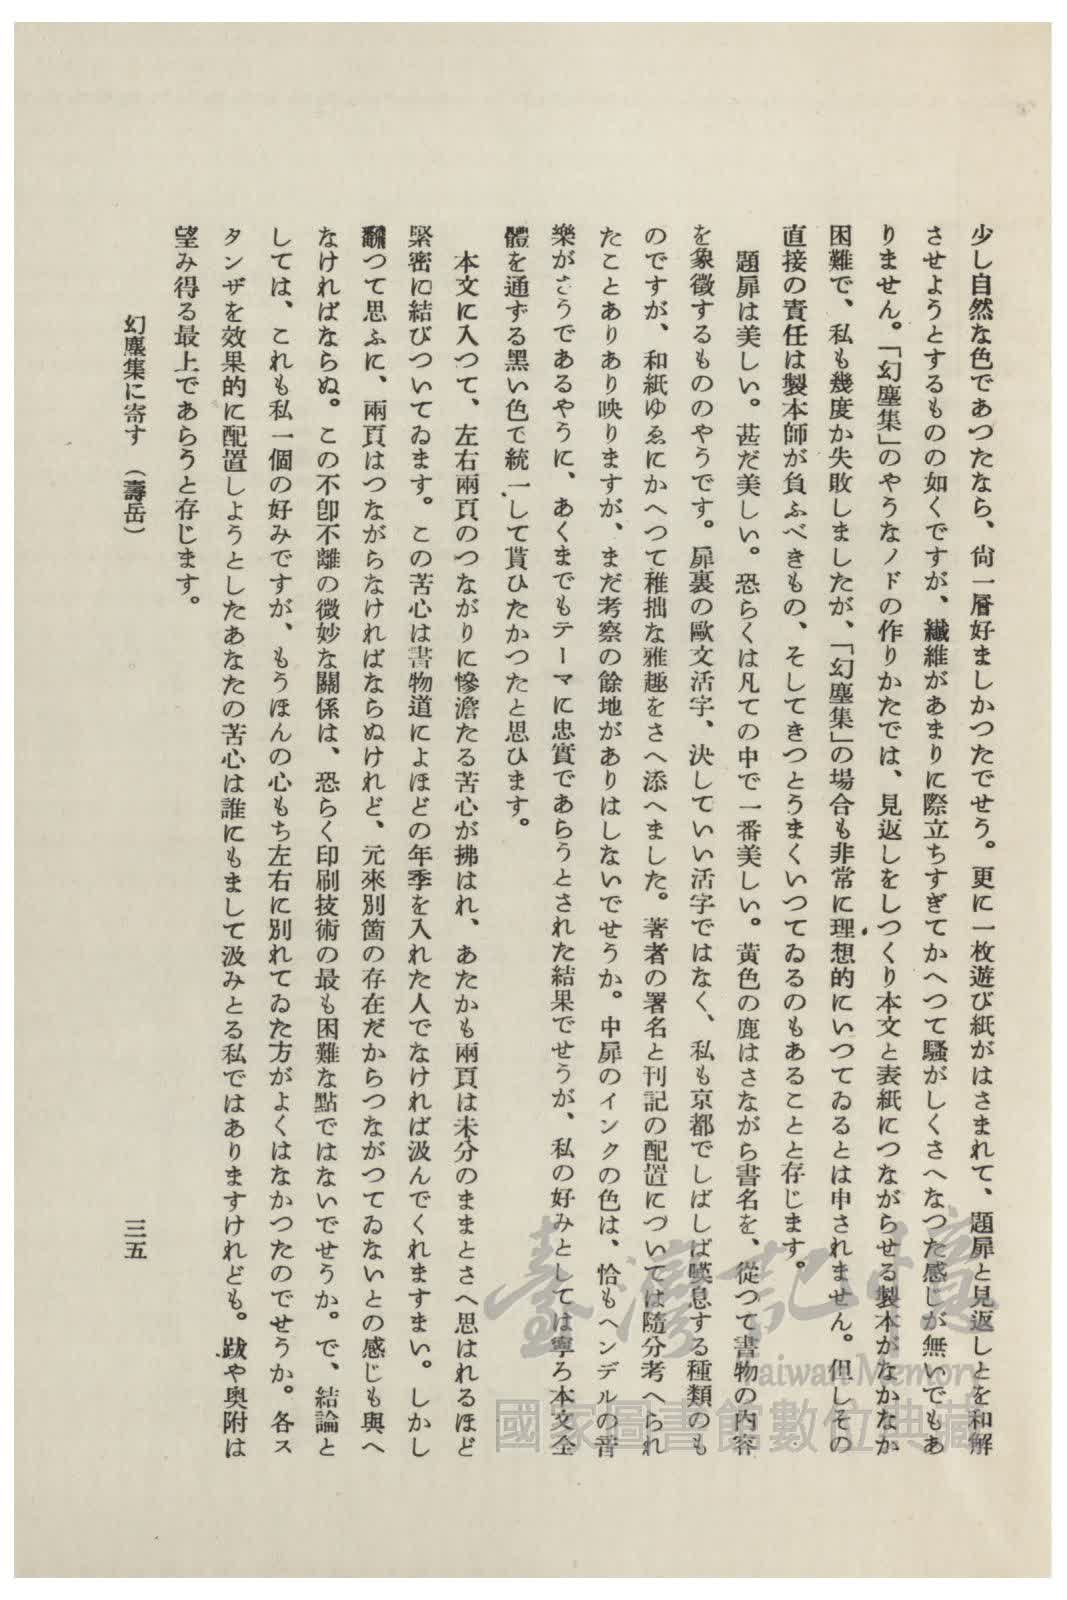 少し自然な色であつたなら、尙一層好ましかつたでせう。更に一枚遊び紙がはさまれて、題扉と見返しとを和解
させようとするものの如くですが、纎維があまりに際立ちすぎてかへつて騷がしくさへなつた感じが無いでもあ
りません。「幻塵集」のやうなノドの作りかたでは、見返しをしつくり本文と表紙につながらせる製本がなかなか
困難で、私も幾度か失敗しましたが、「幻塵集」の場合も非常に理想的にいつてゐるとは申されません。但しその
直接の責任は製本師が負ふべきもの、そしてきつとうまくいつてゐるのもあることと存じます。
題扉は美しい。甚だ美しい。恐らくは凡ての中で一番美しい。黃色の鹿はさながら書名を、從つて書物の内容
を象徵するもののやうです。扉裏の歐文活字、決していい活字ではなく、私も京都でしばしば嘆息する種類のも
のですが、和紙ゆゑにかへつて稚拙な雅趣をさへ添へました。著者の署名と刊記の配置については隨分考へられ
たことありあり映りますが、まだ考察の餘地がありはしないでせうか。中扉のインクの色は、恰もヘンデルの音
樂がさうであるやうに、あくまでもテーマに忠實であらうとされた結果でせうが、私の好みとしては寧ろ本文全
體を通ずる黑い色で統一して貰ひたかつたと思ひます。
本文に入つて、左右兩頁のつながりに慘澹たる苦心が拂はれ、あたかも兩頁は未分のままとさへ思はれるほど
緊密に結びついてゐます。この苦心は書物道によほどの年季を入れた人でなければ汲んでくれますまい。しかし
飜つて思ふに、兩頁はつながらなければならぬけれど、元來別箇の存在だからつながつてゐないとの感じも與へ
なければならぬ。この不卽不離の微妙な關係は、恐らく印刷技術の最も困難な點ではないでせうか。で、結論と
しては、これも私一個の好みですが、もうほんの心もち左右に別れてゐた方がよくはなかつたのでせうか。各ス
タンザを效果的に配置しようとしたあなたの苦心は誰にもまして汲みとる私ではありますけれども。跋や奧附は
望み得る最上であらうと存じます。
幻塵集に寄す （壽岳）
三五
臺灣記憶
Taiwan Memory
國家圖書館數位典藏